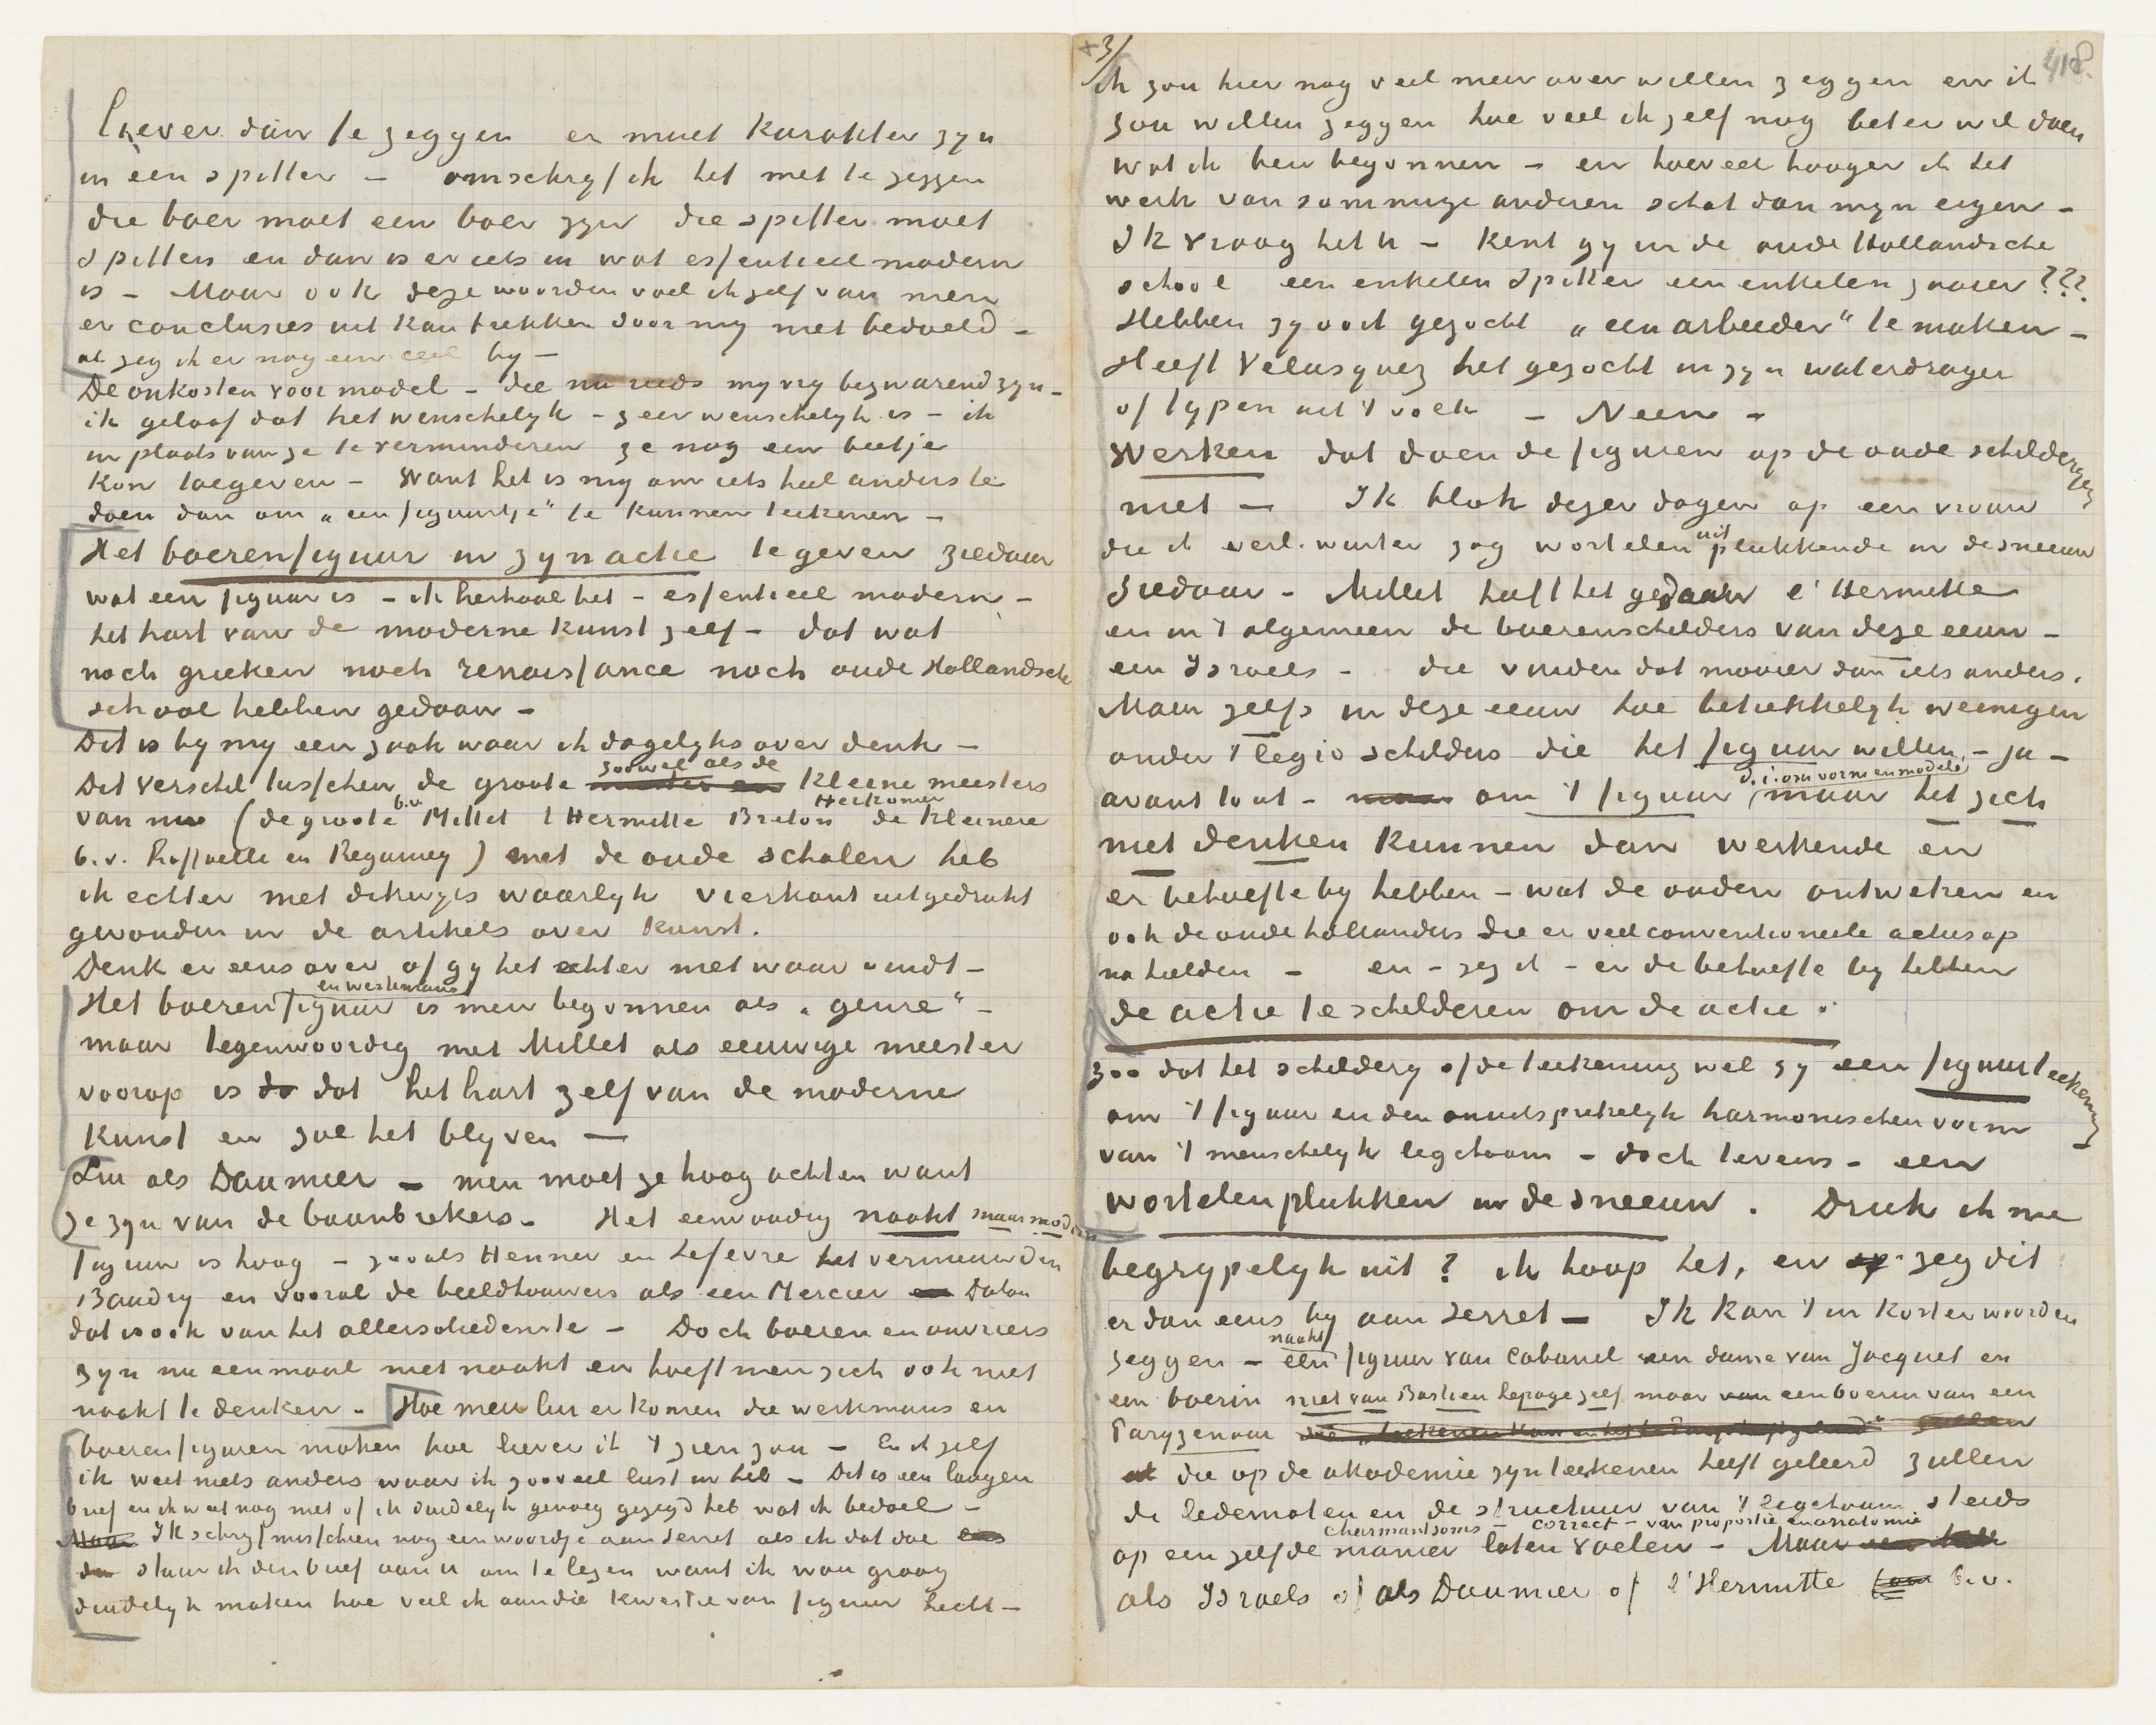 Liever dan te zeggen er moet karakter zyn
in een spitter – omschryf ik het met te zeggen
die boer moet een boer zyn die spitter moet
spitten en dan is er iets in wat essentieel modern
is – Maar ook deze woorden voel ik zelf dat men
er conclusies uit kan trekken door my niet bedoeld –
al zeg ik er nog een by –
De onkosten voor model – die nu reeds my vry bezwarend zyn –
ik geloof dat het wenschelyk – zeer wenschelyk is – ik
in plaats van ze te verminderen ze nog een beetje
kon toegeven – Want het is my om iets heel anders te
doen dan om „een figuurtje" te kunnen teekenen –
Het boerenfiguur in zyn actie te geven ziedaar
wat een figuur is – ik herhaal het – essentieel modern –
het hart van de moderne kunst zelf – dat wat
noch grieken noch renaissance noch oude Hollandsch
school hebben gedaan –
Dit is by my een zaak waar ik dagelyks over denk –
Dit verschil tusschen de groote zoowel als de kleine meesters
van nu (de groote b.v. Millet l Hermitte Breton Herkomer de kleinere
b.v. Raffaelli en Regamey) met de oude scholen heb
ik echter niet dikwyls waarlyk vierkant uitgedrukt
gevonden in de artikels over kunst.
Denk er eens over of gy het echter niet waar vindt –
Het boeren en werkmansfiguur is men begonnen als „genre" –
maar tegenwoordig met Millet als eeuwige meester
voorop is dat het hart zelf van de moderne
kunst en zal het blyven —
Lui als Daumier – men moet ze hoog achten want
ze zyn van de baanbrekers – Het eenvoudig naakt maar modern
figuur is hoog – zooals Henner en Lefevre het vernieuwden
Baudry en vooral de beeldhouwers als een Mercier Dalou
dat is ook van het allersoliedenste – Doch boeren en ouvriers
zyn nu eenmaal niet naakt en hoeft men zich ook niet
naakt te denken – Hoe meer lui er komen die werkmans en
boerenfiguren maken hoe liever ik 't zien zou – En ik zelf
ik weet niets anders waar ik zooveel lust in heb – Dit is een langen
brief en ik weet nog niet of ik duidelyk genoeg gezegd heb wat ik bedoel –
Ik schryf misschien nog een woordje aan Serret als ik dat doe
stuur ik den brief aan u om te lezen want ik wou graag
duidelyk maken hoe veel ik aan die kwestie van figuur hecht –
3/
418.
ik zou hier nog veel meer over willen zeggen en ik
zou willen zeggen hoe veel ik zelf nog beter wil doen
wat ik ben begonnen – en hoeveel hooger ik het
werk van sommige anderen schat dan myn eigen –
Ik vraag het u – kent gy in de oude Hollandsche
school een enkelen spitter een enkelen zaaier ???
Hebben zy ooit gezocht „een arbeider" te maken –
Heeft Velasquez het gezocht in zyn waterdrager
of typen uit 't volk – Neen –
Werken dat doen de figuren op de oude schilderyen
niet — Ik blok dezer dagen op een vrouw
die ik verl. winter zag wortelen uit plukkende in de sneeuw
Ziedaar – Millet heeft het gedaan l'Hermitte
en in 't algemeen de boerenschilders van deze eeuw –
een Israels – die vinden dat mooier dan iets anders.
Maar zelfs in deze eeuw hoe betrekkelyk weinigen
onder 't legio schilders die het figuur willen – ja –
avant tout – om 't figuur d.i. om vorm en modelé maar het zich
niet denken kunnen dan werkende en
er behoefte by hebben – wat de ouden ontweken en
ook de oude hollanders die er veel conventioneele acties op
na hielden – en – zeg ik – er de behoefte by hebben
de actie te schilderen om de actie.
Zoo dat het schildery of de teekening wel zy een figuurteekening
om 't figuur en den onuitsprekelyk harmonischen vorm
van 't menschelyk ligchaam – doch tevens – een
wortelenplukken in de sneeuw. Druk ik me
begrypelyk uit ? ik hoop het, en zeg dit
er dan eens by aan Serret — Ik kan 't in korter woorden
zeggen – één naaktfiguur van Cabanel een dame van Jacquet en
een boerin niet van Bastien Lepage zelf maar een boerin van een
Paryzenaar
die op de akademie zyn teekenen heeft geleerd zullen
de ledematen en de structuur van 't ligchaam steeds
op een zelfde manier laten voelen – charmant soms – correct – van proportie en anatomie Maar
als Israels of als Daumier of l'Hermitte b.v.